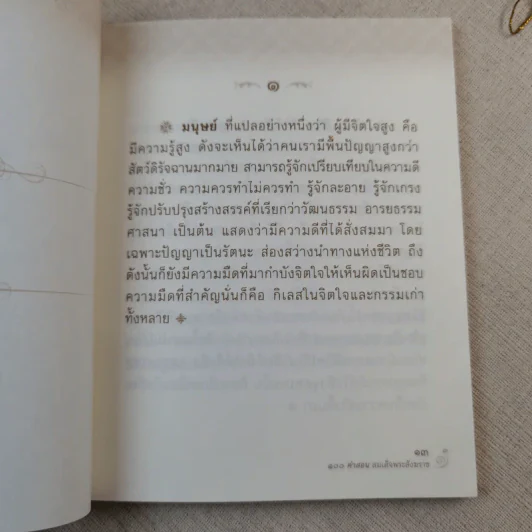 ๑
มนุษย์ ที่แปลอย่างหนึ่งว่า ผู้มีจิตใจสูง คือ
มีความรู้สูง ดังจะเห็นได้ว่าคนเรามีพื้นปัญญาสูงกว่า
สัตว์ดิรัจฉานมากมาย สามารถรู้จักเปรียบเทียบในความดี
ความชั่ว ความควรทำไม่ควรทำ รู้จักละอาย รู้จักเกรง
รู้จักปรับปรุงสร้างสรรค์ที่เรียกว่าวัฒนธรรม อารยธรรม
ศาสนา เป็นต้น แสดงว่ามีความดีที่ได้สั่งสมมา โดย
เฉพาะปัญญาเป็นรัตนะ ส่องสว่างนำทางแห่งชีวิต ถึง
ดังนั้นก็ยังมีความมืดที่มากำบังจิตใจให้เห็นผิดเป็นชอบ
ความมืดที่สำคัญนั่นก็คือ กิเลสในจิตใจและกรรมเก่า
ทั้งหลาย
๑๓
๑๐๐ คำสอน สมเด็จพระสังฆราช